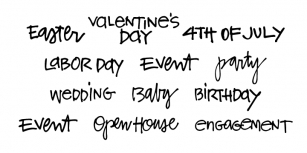 Easter VALENTINE'S DAY 4TH OF JULY
LABOR DAY EVENT party
WEDDING Baby BIRTHDAY
EVENT Open House ENGAGEMENT